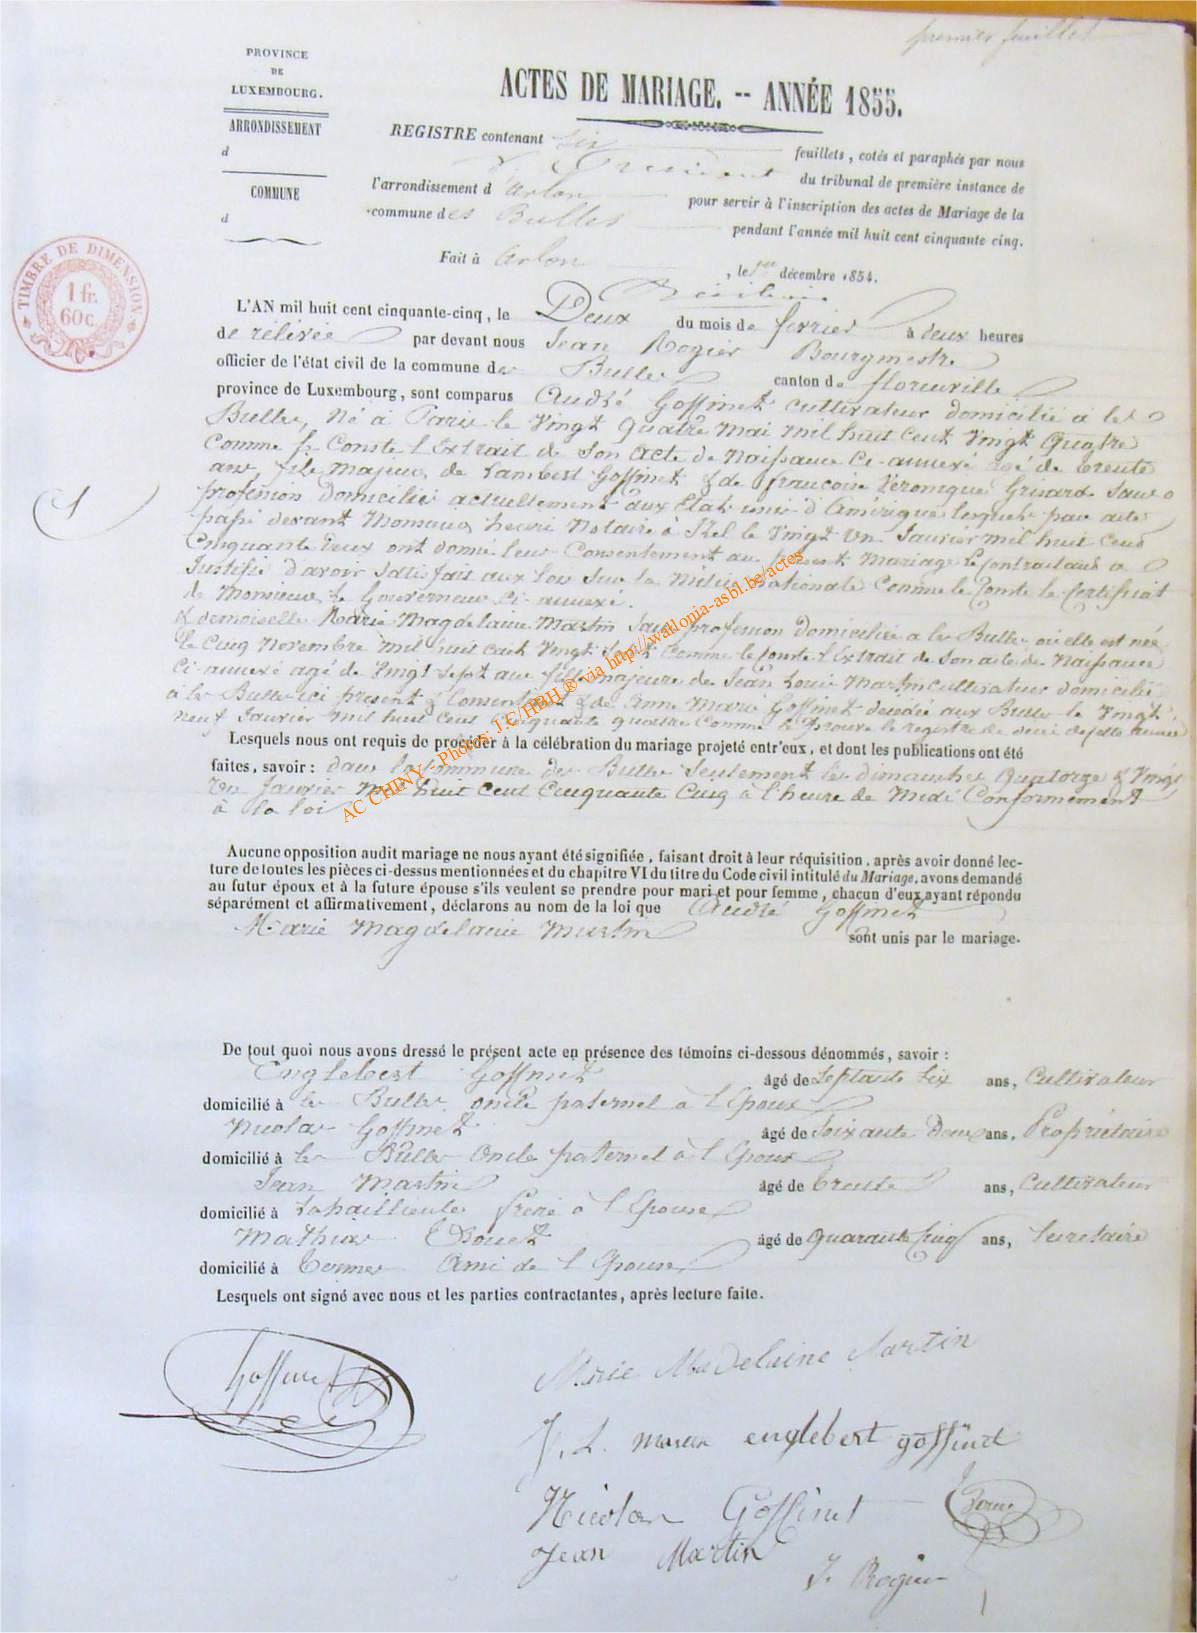 premier feuillet
PROVINCE
DE
LUXEMBOURG.
ARRONDISSEMENT
d
COMMUNE
d
ACTES DE MARIAGE. -- ANNÉE 1855.
REGISTRE contenant six feuillets, cotés et paraphés par nous
Président du tribunal de première instance de
l'arrondissement d'Arlon pour servir à l'inscription des actes de Mariage de la
commune des Bulles pendant l'année mil huit cent cinquante cinq.
Fait à Arlon, le 1er décembre 1854.
TIMBRE DE DIMENSION
1 fr.
60 c.
L'AN mil huit cent cinquante-cinq, le Deux du mois de fevrier à deux heures
de rélivée par devant nous Jean Rogier Bourgmestre
officier de l'état civil de la commune des Bulles canton de florenville
province de Luxembourg, sont comparus André Goffinet cultivateur domicilié à les
Bulles, Né à Paris le Vingt quatre mai mil huit cent Vingt quatre
Comme le Conste l'Extrait de Son acte de Naissance ci-annexé agé de trente
ans, fils majeur de Lambert Goffinet & de francoise Veronique Grisard Sans
profession domiciliés actuellement aux Etats unis d'Amerique lesquels par acte
passé devant Monsieur henri Notaire à Izel le Vingt Un Janvier mil huit Cent
Cinquante deux ont donné leur Consentement au présent Mariage le Contractant a
Justifié d'avoir Satisfait aux lois Sur la Milice Nationale Comme le Conste le Certificat
de Monsieur le Gouverneur ci-annexé.
& demoiselle Marie Magdelaine Martin Sans profession domiciliée a les Bulles où elle est née
le Cinq Novembre mil huit cent Vingt Sept Comme le Conste l'Extrait de Son acte de Naissance
Ci-annexé agé de Vingt Sept ans fille majeure de Jean Louis Martin Cultivateur domicilié
à les Bulles ici présent & Consentant & de Anne Marie Goffinet decedée aux Bulles le Vingt
neuf Janvier mil huit Cent Cinquante quattre Comme le prouve le registre de deces de cette année
Lesquels nous ont requis de procéder à la célébration du mariage projeté entr'eux, et dont les publications ont été
faites, savoir: dans la Commune des Bulles Seulement les dimanches quatorze & Vingt
Un Janvier Mil huit cent Cinquante Cinq à l'heure de Midi Conformement
à la loi
Aucune opposition audit mariage ne nous ayant été signifiée, faisant droit à leur réquisition, après avoir donné lec-
ture de toutes les pièces ci-dessus mentionnées et du chapitre VI du titre du Code civil intitulé du Mariage, avons demandé
au futur époux et à la future épouse s'ils veulent se prendre pour mari et pour femme, chacun d'eux ayant répondu
séparément et affirmativement, déclarons au nom de la loi que André Goffinet
Marie Magdelaine Martin sont unis par le mariage.
De tout quoi nous avons dressé le présent acte en présence des témoins ci-dessous dénommés, savoir:
Englebert Goffinet âgé de Septante Six ans, Cultivateur
domicilié à les Bulles oncle paternel à l'Epoux
Nicolas Goffinet âgé de Soixante Deux ans, Propriétaire
domicilié à les Bulles Oncle paternel à l'Epoux
Jean Martin âgé de trente ans, Cultivateur
domicilié à frère à l'Epouse
Mathias âgé de Quarante Cinq ans, Secretaire
domicilié à Termes Ami de l'Epouse
Lesquels ont signé avec nous et les parties contractantes, après lecture faite.
Goffinet
Marie Madelaine Martin
J. L. Martin englebert goffinet
Nicolas Goffinet
Jean Martin
J. Rogier
AC CHINY - Photos: J.C HBH ® via http://wallonia-asbl.be/actes